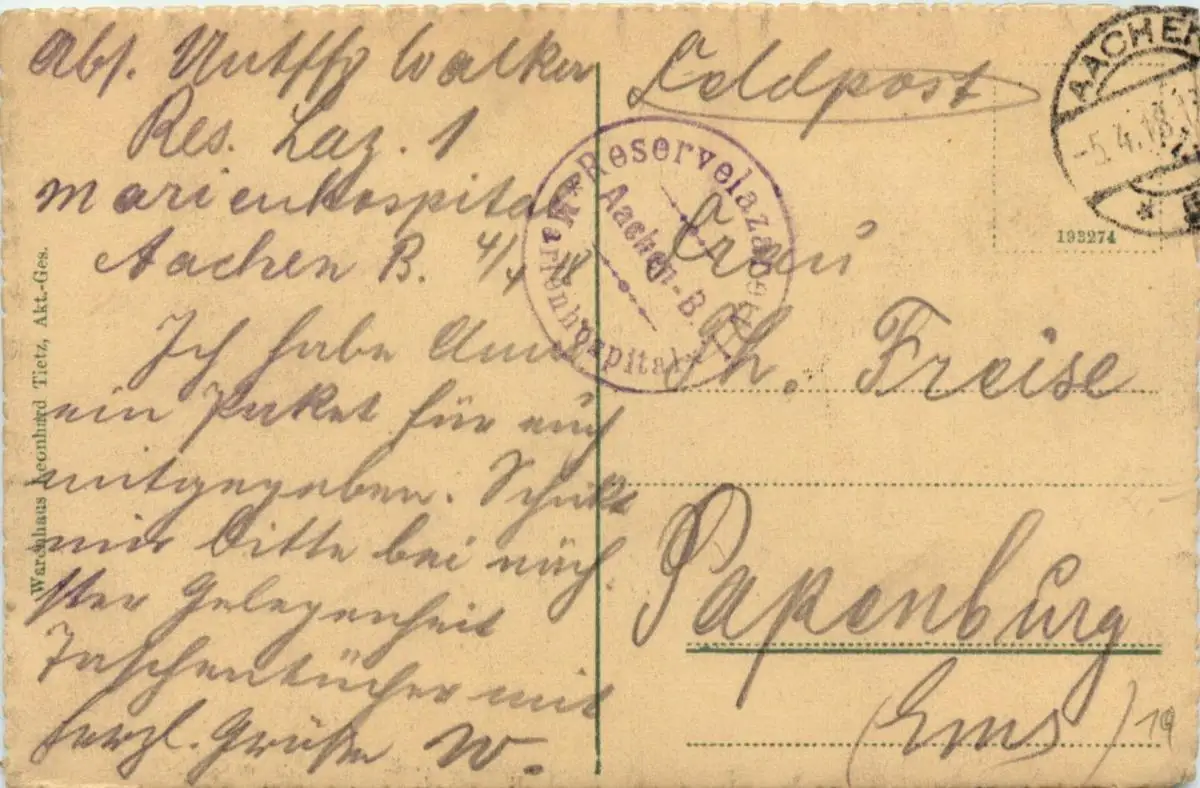 Abs. Untffz Walker
Res. Laz. 1
Marienhospital
Aachen B. 4/4 18
Ich habe Anna
ein Paket für euch
mitgegeben. Schickt
mir bitte bei näch
ster Gelegenheit
Taschentücher mit
herzl. Grüßen W.
Warenhaus Leonhard Tietz, Akt.-Ges.
Feldpost
* Reservelazarett
Aachen-B.
Marienhospital
AACHEN
-5.4.18.
*
192274
Frau
Th. Freise
Papenburg
(Ems)
19